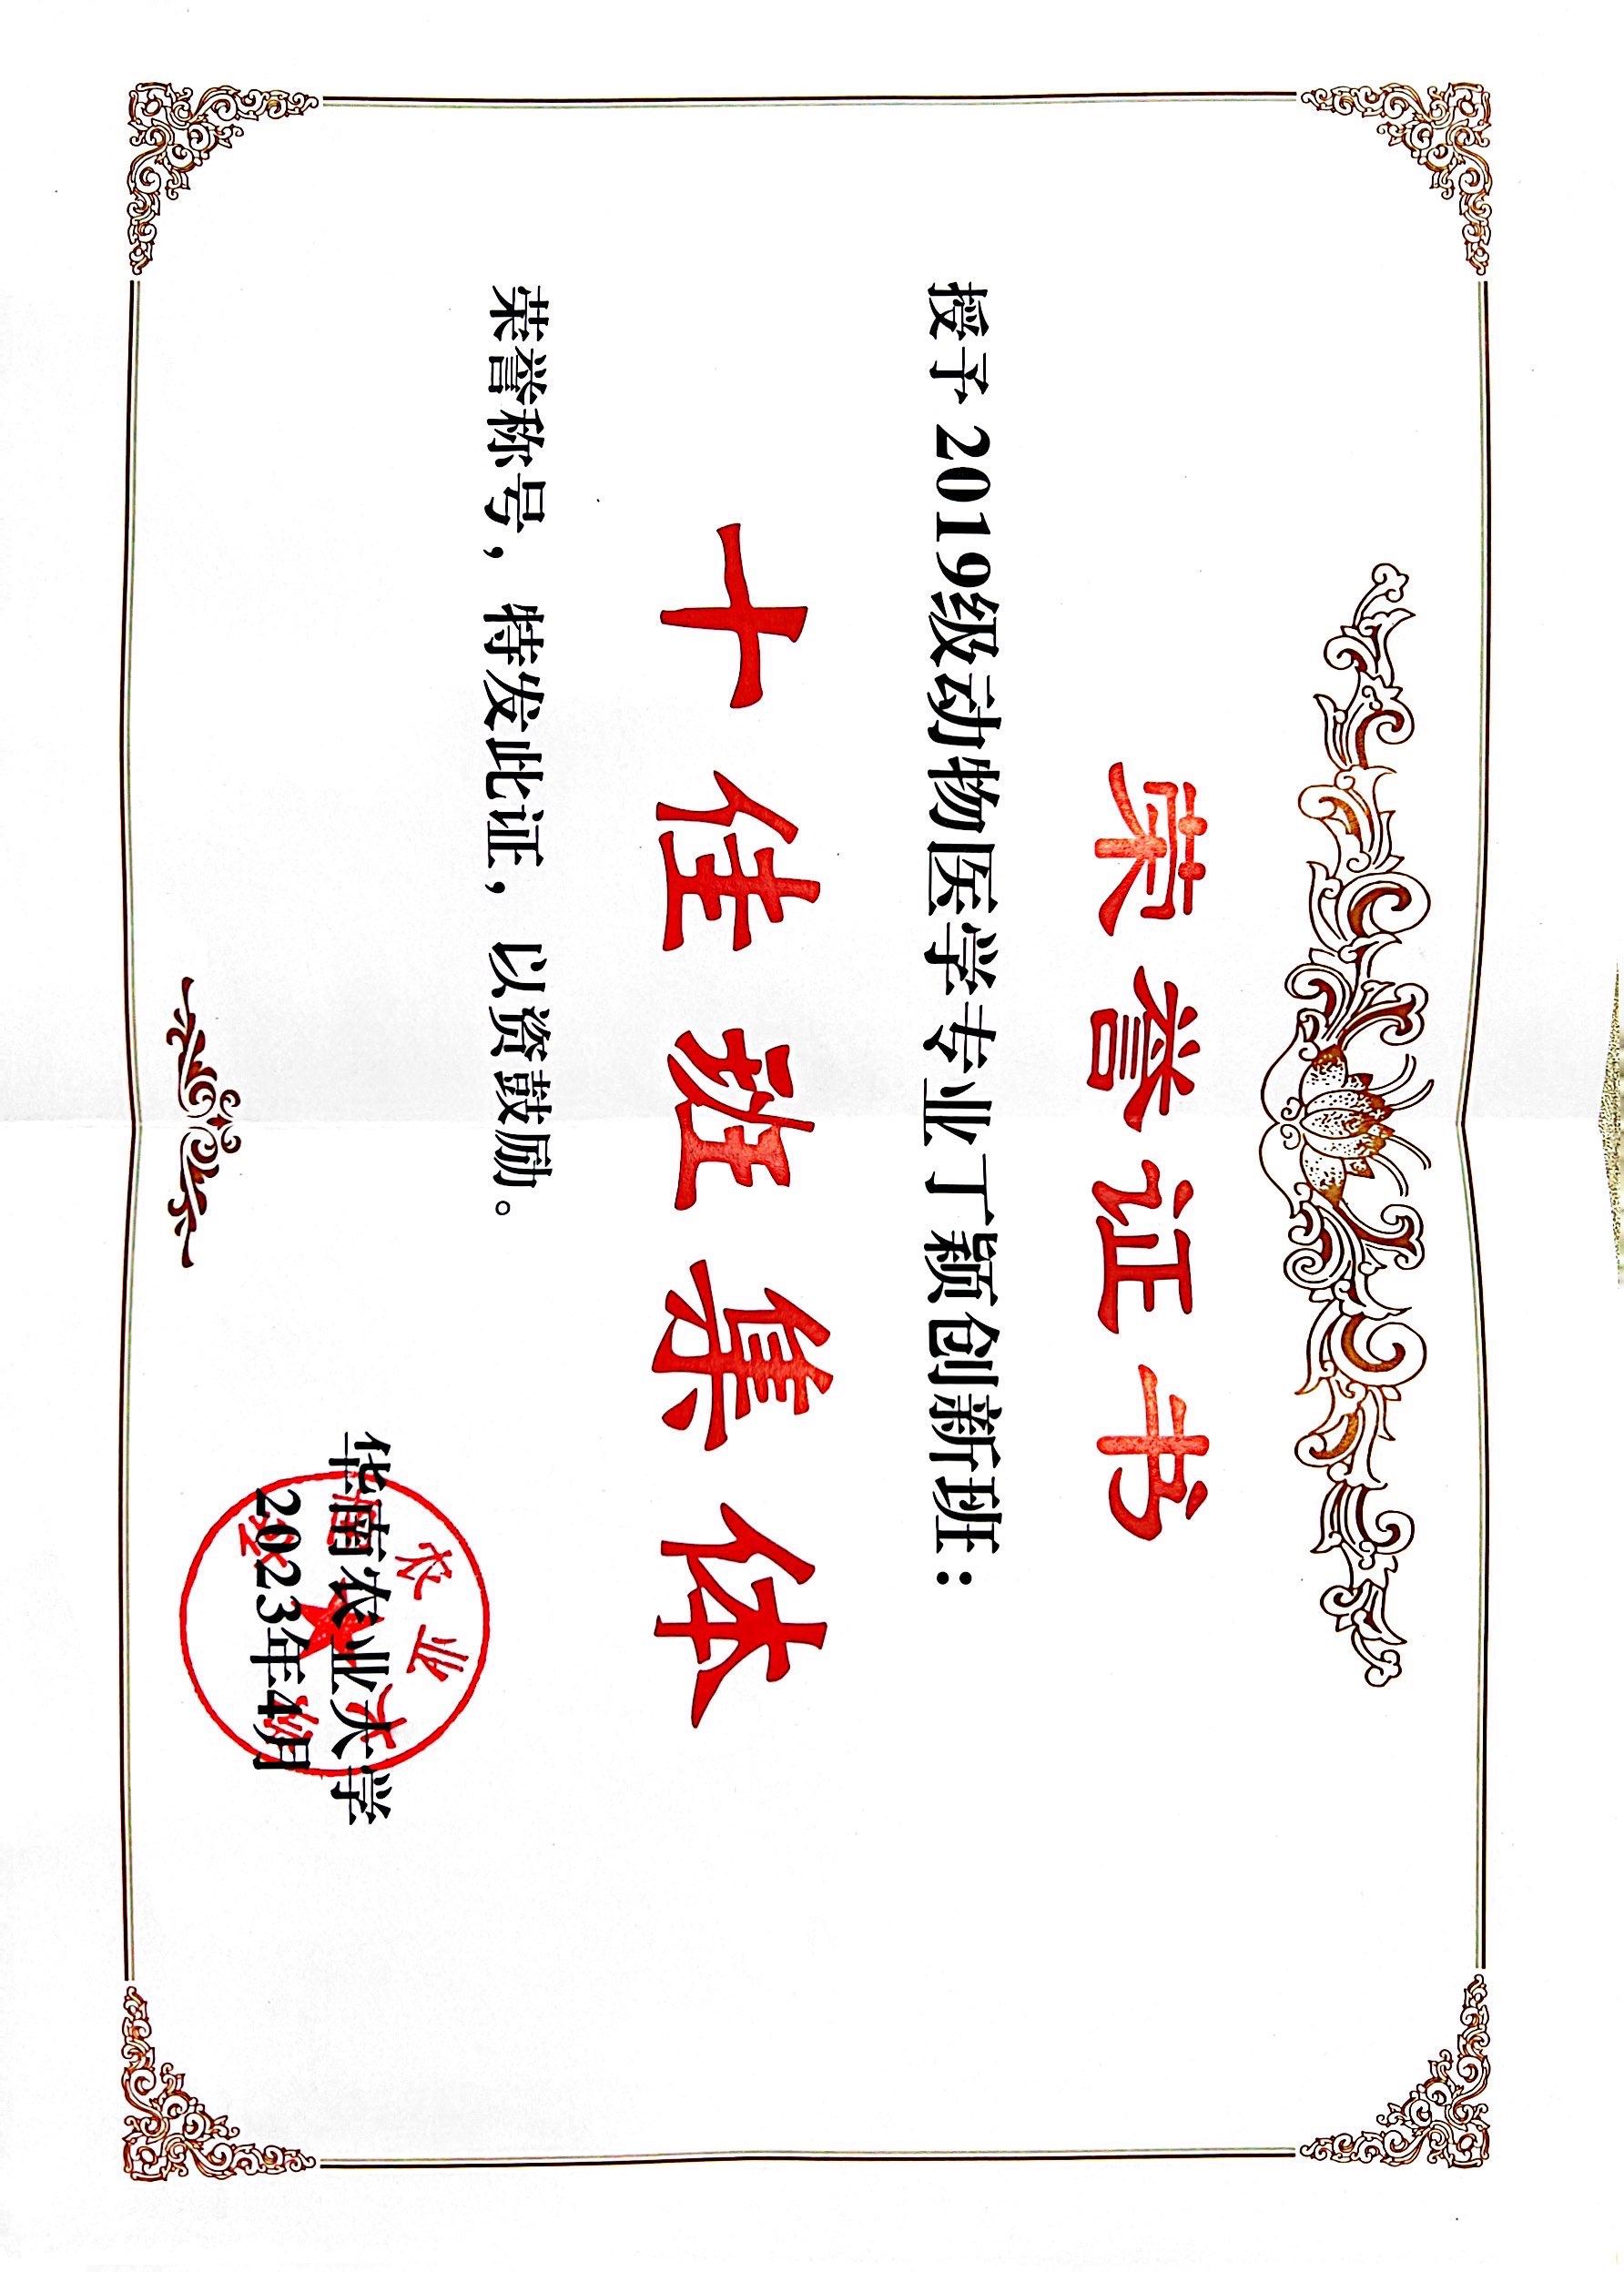 荣誉证书
授予 2019级动物医学专业丁颖创新班：
十佳班集体
荣誉称号，特发此证，以资鼓励。
华南农业大学
2023年4月
农业大